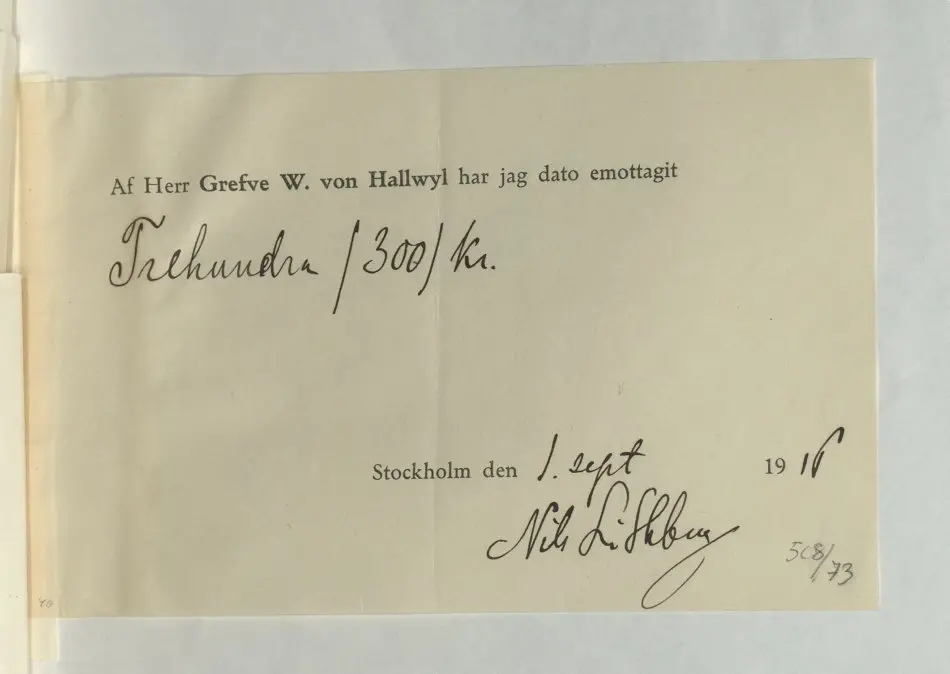 Af Herr Grefve W. von Hallwyl har jag dato emottagit
Trehundra /300/ kr.
Stockholm den 1. sept 1916
Nils Lithberg
508/73